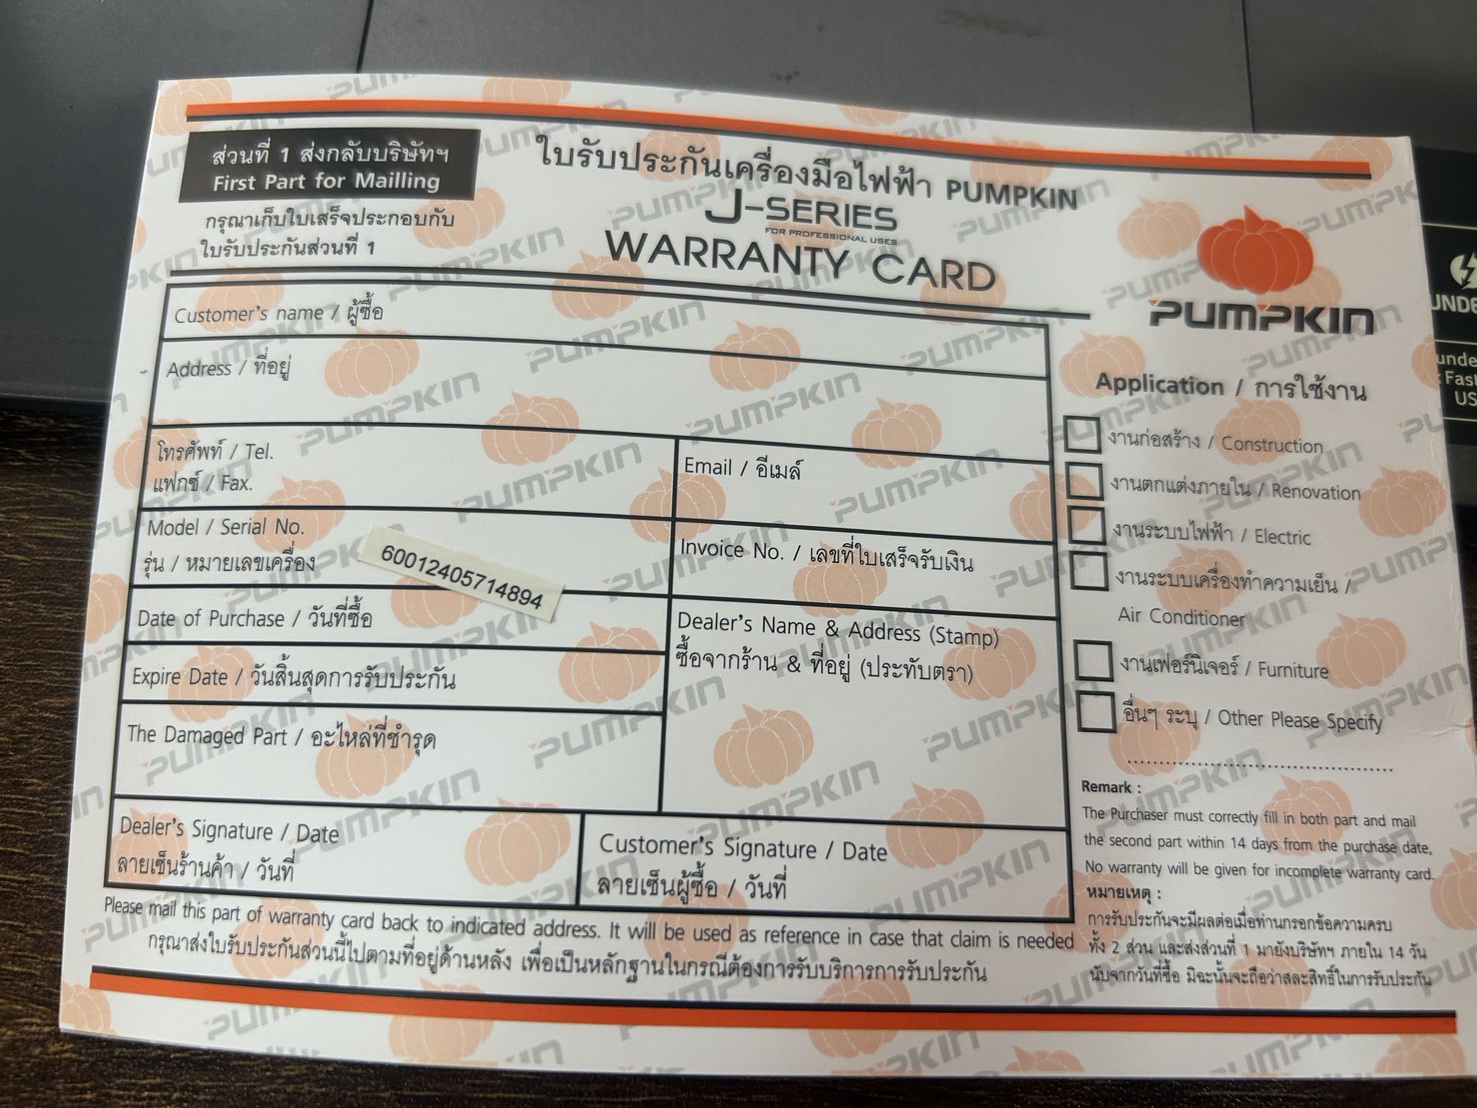 ส่วนที่ 1 ส่งกลับบริษัทฯ
First Part for Mailling
กรุณาเก็บใบเสร็จประกอบกับ
ใบรับประกันส่วนที่ 1
ใบรับประกันเครื่องมือไฟฟ้า PUMPKIN
J-SERIES
FOR PROFESSIONAL USES
WARRANTY CARD
PUMPKIN
Customer's name / ผู้ซื้อ
Address / ที่อยู่
โทรศัพท์ / Tel.
แฟกซ์ / Fax.
Email / อีเมล์
Model / Serial No.
รุ่น / หมายเลขเครื่อง
60012405714894
Invoice No. / เลขที่ใบเสร็จรับเงิน
Date of Purchase / วันที่ซื้อ
Expire Date / วันสิ้นสุดการรับประกัน
The Damaged Part / อะไหล่ที่ชำรุด
Dealer's Name & Address (Stamp)
ซื้อจากร้าน & ที่อยู่ (ประทับตรา)
Dealer's Signature / Date
ลายเซ็นร้านค้า / วันที่
Customer's Signature / Date
ลายเซ็นผู้ซื้อ / วันที่
Please mail this part of warranty card back to indicated address. It will be used as reference in case that claim is needed
กรุณาส่งใบรับประกันส่วนนี้ไปตามที่อยู่ด้านหลัง เพื่อเป็นหลักฐานในกรณีต้องการรับบริการการรับประกัน
Application / การใช้งาน
งานก่อสร้าง / Construction
งานตกแต่งภายใน / Renovation
งานระบบไฟฟ้า / Electric
งานระบบเครื่องทำความเย็น /
Air Conditioner
งานเฟอร์นิเจอร์ / Furniture
อื่นๆ ระบุ / Other Please Specify
Remark :
The Purchaser must correctly fill in both part and mail
the second part within 14 days from the purchase date,
No warranty will be given for incomplete warranty card.
หมายเหตุ :
การรับประกันจะมีผลต่อเมื่อท่านกรอกข้อความครบ
ทั้ง 2 ส่วน และส่งส่วนที่ 1 มายังบริษัทฯ ภายใน 14 วัน
นับจากวันที่ซื้อ มิฉะนั้นจะถือว่าสละสิทธิ์ในการรับประกัน